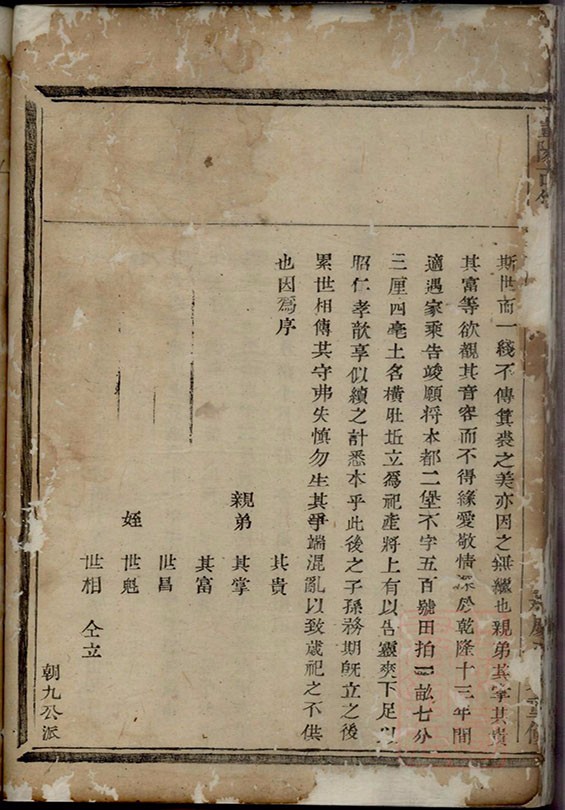 斯世而一綫不傳箕裘之美亦因之無繼也親弟其掌其貴
其富等欲親其音容而不得緣愛敬情深於乾隆十三年間
適遇家乘告竣願將本都二堡不字五百號田拍一畝七分
三厘四毫土名橫肚坵立為祀產將上有以告靈爽下足以
昭仁孝歆享似續之計悉本乎此後之子孫務期旣立之後
累世相傳其守弗失慎勿生其爭端混亂以致歲祀之不供
也因為序
其貴
親弟 其掌
其富
世昌
姪 世魁
世相 仝立
朝九公派